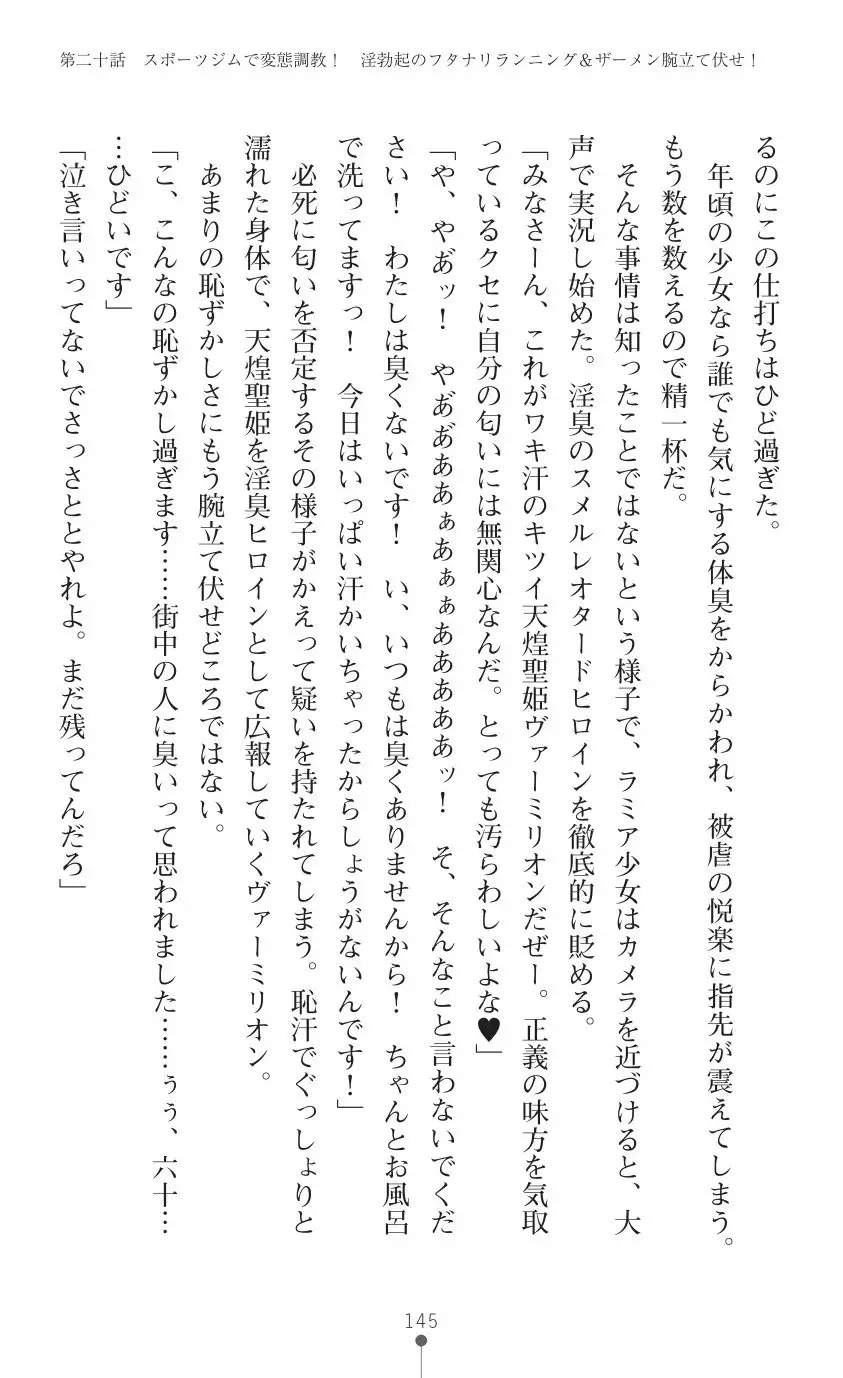 第二十話　スポーツジムで変態調教！　淫勃起のフタナリランニング＆ザーメン腕立て伏せ！
るのにこの仕打ちはひど過ぎた。
　年頃の少女なら誰でも気にする体臭をからかわれ、被虐の悦楽に指先が震えてしまう。
もう数を数えるので精一杯だ。
　そんな事情は知ったことではないという様子で、ラミア少女はカメラを近づけると、大
声で実況し始めた。淫臭のスメルレオタードヒロインを徹底的に貶める。
「みなさーん、これがワキ汗のキツイ天煌聖姫ヴァーミリオンだぜー。正義の味方を気取
っているクセに自分の匂いには無関心なんだ。とっても汚らわしいよな♥」
「や、やあ゛ッ！　やあ゛あ゛ああぁあぁぁああああッ！　そ、そんなこと言わないでくだ
さい！　わたしは臭くないです！　い、いつもは臭くありませんから！　ちゃんとお風呂
で洗ってますっ！　今日はいっぱい汗かいちゃったからしょうがないんです！」
　必死に匂いを否定するその様子がかえって疑いを持たれてしまう。恥汗でぐっしょりと
濡れた身体で、天煌聖姫を淫臭ヒロインとして広報していくヴァーミリオン。
　あまりの恥ずかしさにもう腕立て伏せどころではない。
「こ、こんなの恥ずかし過ぎます……街中の人に臭いって思われました……ぅぅ、六十…
…ひどいです」
「泣き言いってないでさっさととやれよ。まだ残ってんだろ」
145